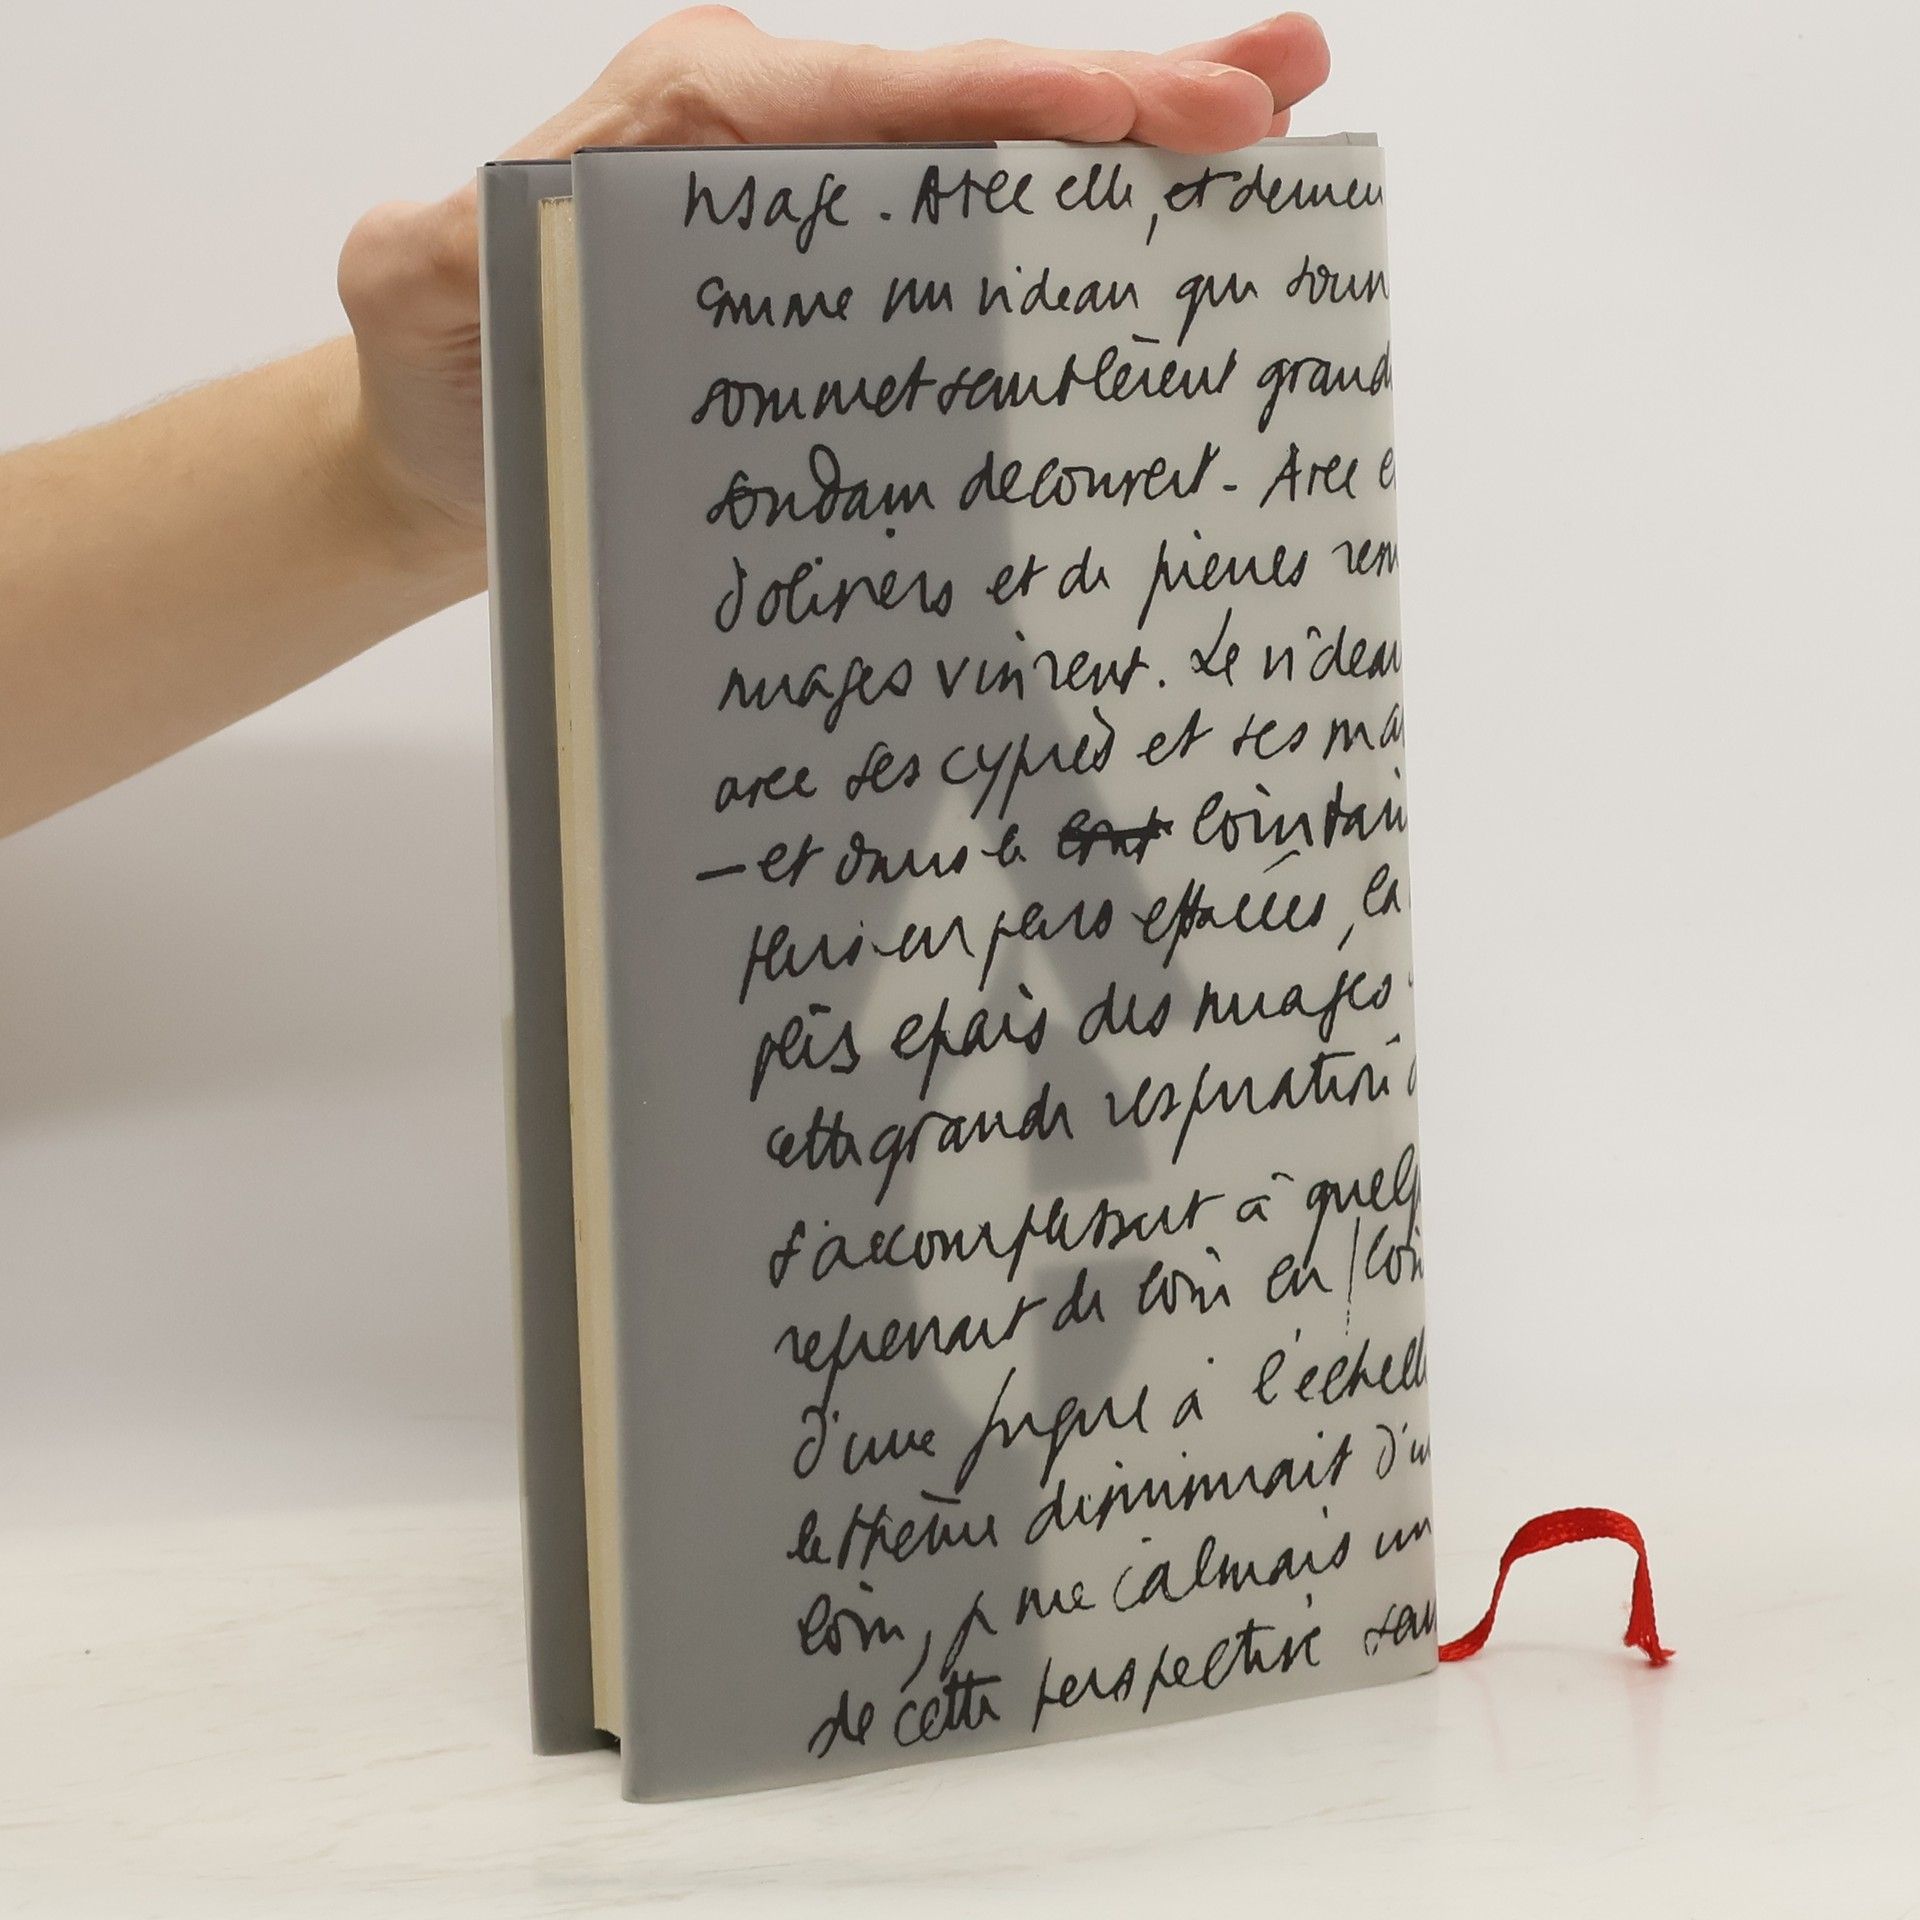 visage. Avec elle, et derrièr
comme un rideau qui s'ouvr
sommet semblèrent grand
soudain découvert. Avec e
d'oliviers et de pierres
nuages vinrent. Le rideau
avec ses cyprès et ses
— et dans le lointain
effacées, la
plis épais des nuages
cette grande respiration
s'accomplissait à quelq
reprenait de loin en loin
d'une fugue à l'échell
le thème diminuait d'u
loin, je me calmais un
de cette perspective